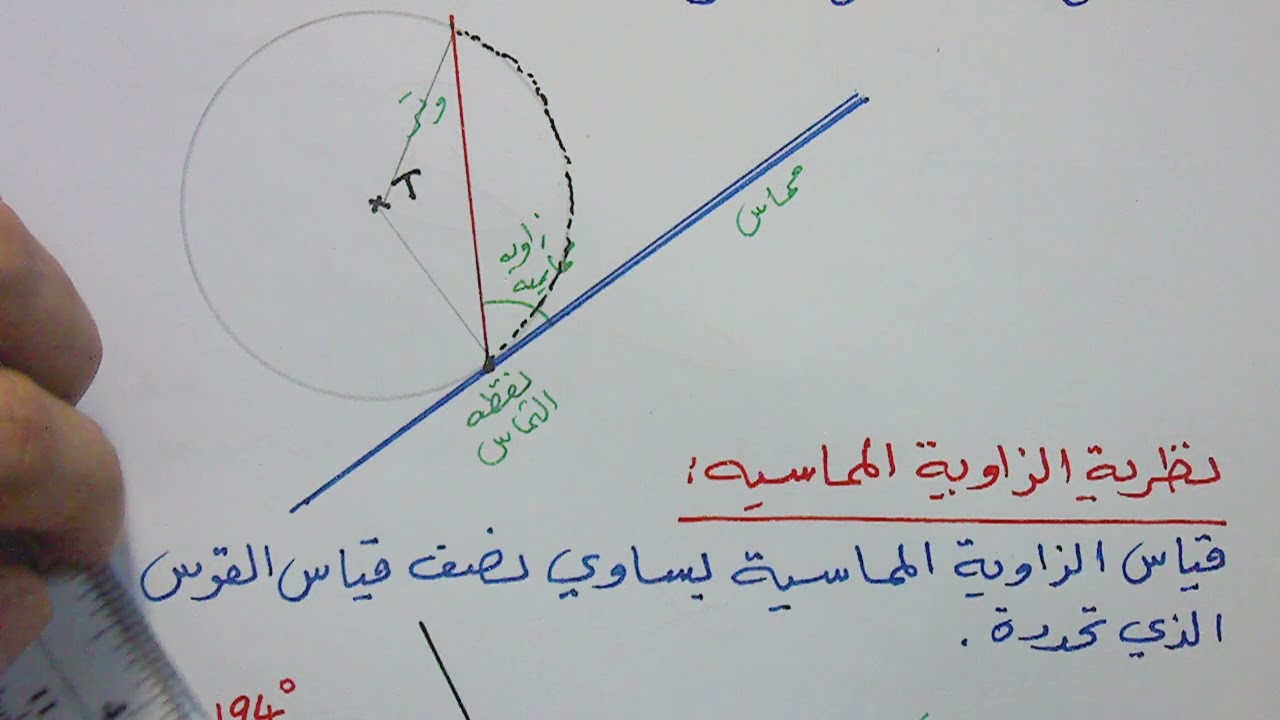 وتر
T
زاوية
مماسية
مماس
نقطه
التماس
نظرية الزاوية المماسيه:
قياس الزاوية المماسية يساوي نصف قياس القوس
الذي تحددة .
194°